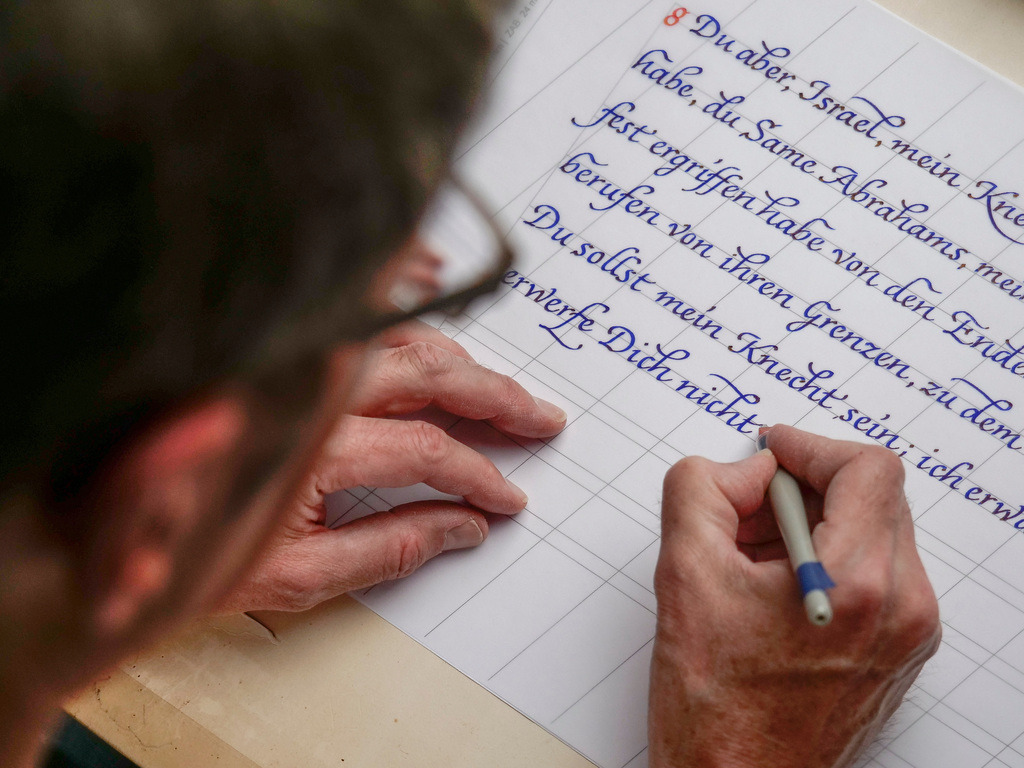 8 Du aber, Israel, mein
habe, du Same Abrahams,
fest ergriffen habe von den
berufen von ihren Grenzen, zu dem
Du sollst mein Knecht sein; ich
erwerfe Dich nicht.